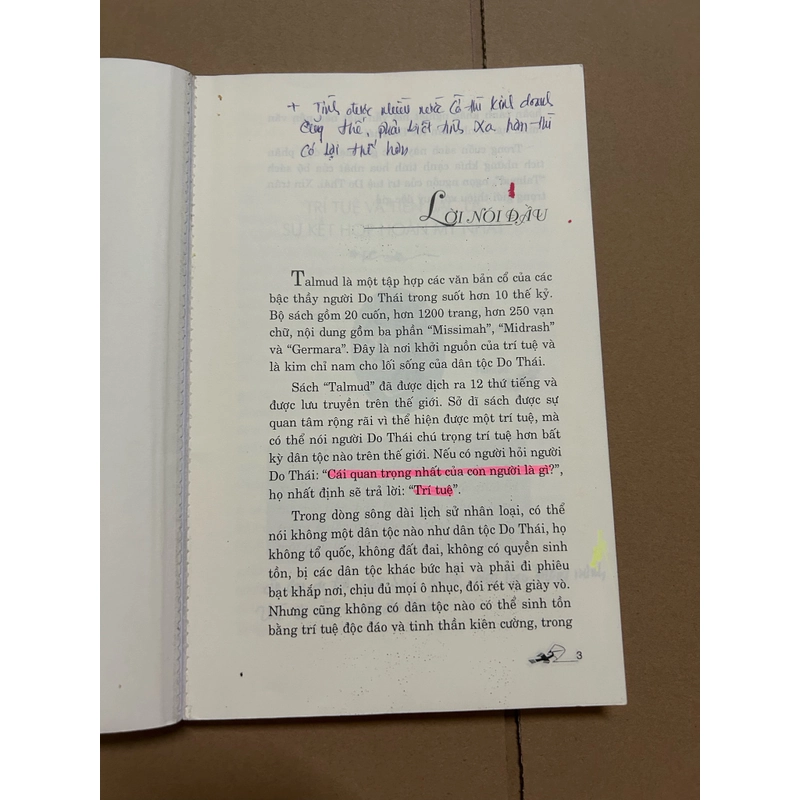 + Tính được nhiều nước Cờ thì Kinh doanh
cũng thế, phải biết tính xa hơn thì
có lợi thế hơn
LỜI NÓI ĐẦU
Talmud là một tập hợp các văn bản cổ của các
bậc thầy người Do Thái trong suốt hơn 10 thế kỷ.
Bộ sách gồm 20 cuốn, hơn 1200 trang, hơn 250 vạn
chữ, nội dung gồm ba phần “Missimah”, “Midrash”
và “Germara”. Đây là nơi khởi nguồn của trí tuệ và
là kim chỉ nam cho lối sống của dân tộc Do Thái.
Sách “Talmud” đã được dịch ra 12 thứ tiếng và
được lưu truyền trên thế giới. Sở dĩ sách được sự
quan tâm rộng rãi vì thể hiện được một trí tuệ, mà
có thể nói người Do Thái chú trọng trí tuệ hơn bất
kỳ dân tộc nào trên thế giới. Nếu có người hỏi người
Do Thái: “Cái quan trọng nhất của con người là gì?”,
họ nhất định sẽ trả lời: “Trí tuệ”.
Trong dòng sông dài lịch sử nhân loại, có thể
nói không một dân tộc nào như dân tộc Do Thái, họ
không tổ quốc, không đất đai, không có quyền sinh
tồn, bị các dân tộc khác bức hại và phải đi phiêu
bạt khắp nơi, chịu đủ mọi ô nhục, đói rét và giày vò.
Nhưng cũng không có dân tộc nào có thể sinh tồn
bằng trí tuệ độc đáo và tinh thần kiên cường, trong
3